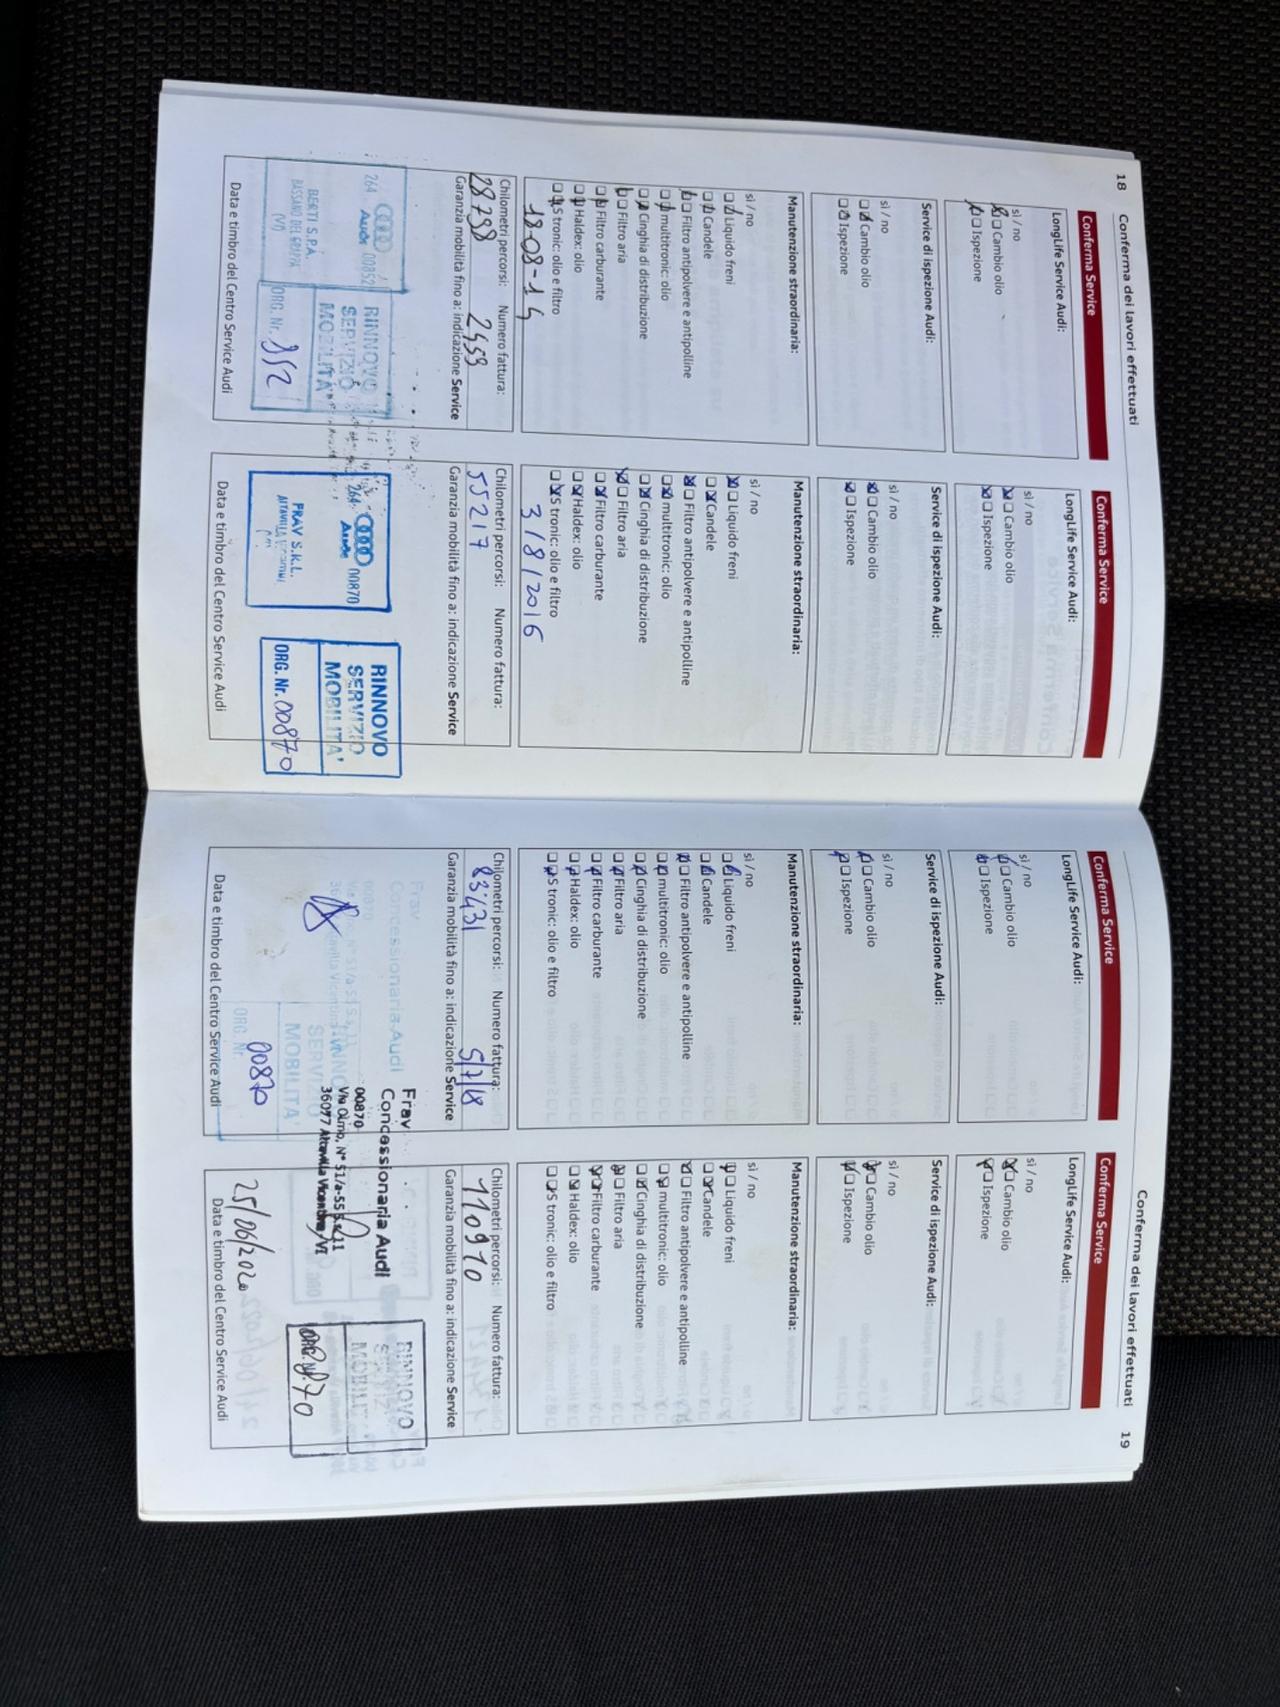 18 Conferma dei lavori effettuati
Conferma Service
LongLife Service Audi:
sì / no
Cambio olio
Ispezione
Service di ispezione Audi:
sì / no
Cambio olio
Ispezione
Manutenzione straordinaria:
sì / no
Liquido freni
Candele
Filtro antipolvere e antipolline
multitronic: olio
Cinghia di distribuzione
Filtro aria
Filtro carburante
Haldex: olio
S tronic: olio e filtro
18-08-14
Chilometri percorsi: Numero fattura:
28798 2459
Garanzia mobilità fino a: indicazione Service
264 Audi 00852
BERTI S.P.A.
BASSANO DEL GRAPPA
(VI)
RINNOVO
SERVIZIO
MOBILITA'
ORG. Nr. 852
Data e timbro del Centro Service Audi
Conferma Service
LongLife Service Audi:
sì / no
Cambio olio
Ispezione
Service di ispezione Audi:
sì / no
Cambio olio
Ispezione
Manutenzione straordinaria:
sì / no
Liquido freni
Candele
Filtro antipolvere e antipolline
multitronic: olio
Cinghia di distribuzione
Filtro aria
Filtro carburante
Haldex: olio
S tronic: olio e filtro
3/8/2016
Chilometri percorsi: Numero fattura:
55217
Garanzia mobilità fino a: indicazione Service
264 Audi 00870
FRAV S.R.L.
RINNOVO
SERVIZIO
MOBILITA'
ORG. Nr. 00870
Data e timbro del Centro Service Audi
Conferma dei lavori effettuati 19
Conferma Service
LongLife Service Audi:
sì / no
Cambio olio
Ispezione
Service di ispezione Audi:
sì / no
Cambio olio
Ispezione
Manutenzione straordinaria:
sì / no
Liquido freni
Candele
Filtro antipolvere e antipolline
multitronic: olio
Cinghia di distribuzione
Filtro aria
Filtro carburante
Haldex: olio
S tronic: olio e filtro
Chilometri percorsi: Numero fattura:
83.431 5/7/18
Garanzia mobilità fino a: indicazione Service
Frav
Concessionaria Audi
00870
MOBILITA'
ORG. Nr. 00870
Data e timbro del Centro Service Audi
Conferma Service
LongLife Service Audi:
sì / no
Cambio olio
Ispezione
Service di ispezione Audi:
sì / no
Cambio olio
Ispezione
Manutenzione straordinaria:
sì / no
Liquido freni
Candele
Filtro antipolvere e antipolline
multitronic: olio
Cinghia di distribuzione
Filtro aria
Filtro carburante
Haldex: olio
S tronic: olio e filtro
Chilometri percorsi: Numero fattura:
110910
Garanzia mobilità fino a: indicazione Service
Frav
Concessionaria Audi
00870
Via Olmo, N° 51/a-55
36077 Altavilla Vicentina, VI
RINNOVO
ORG. Nr. 870
25/06/2020
Data e timbro del Centro Service Audi